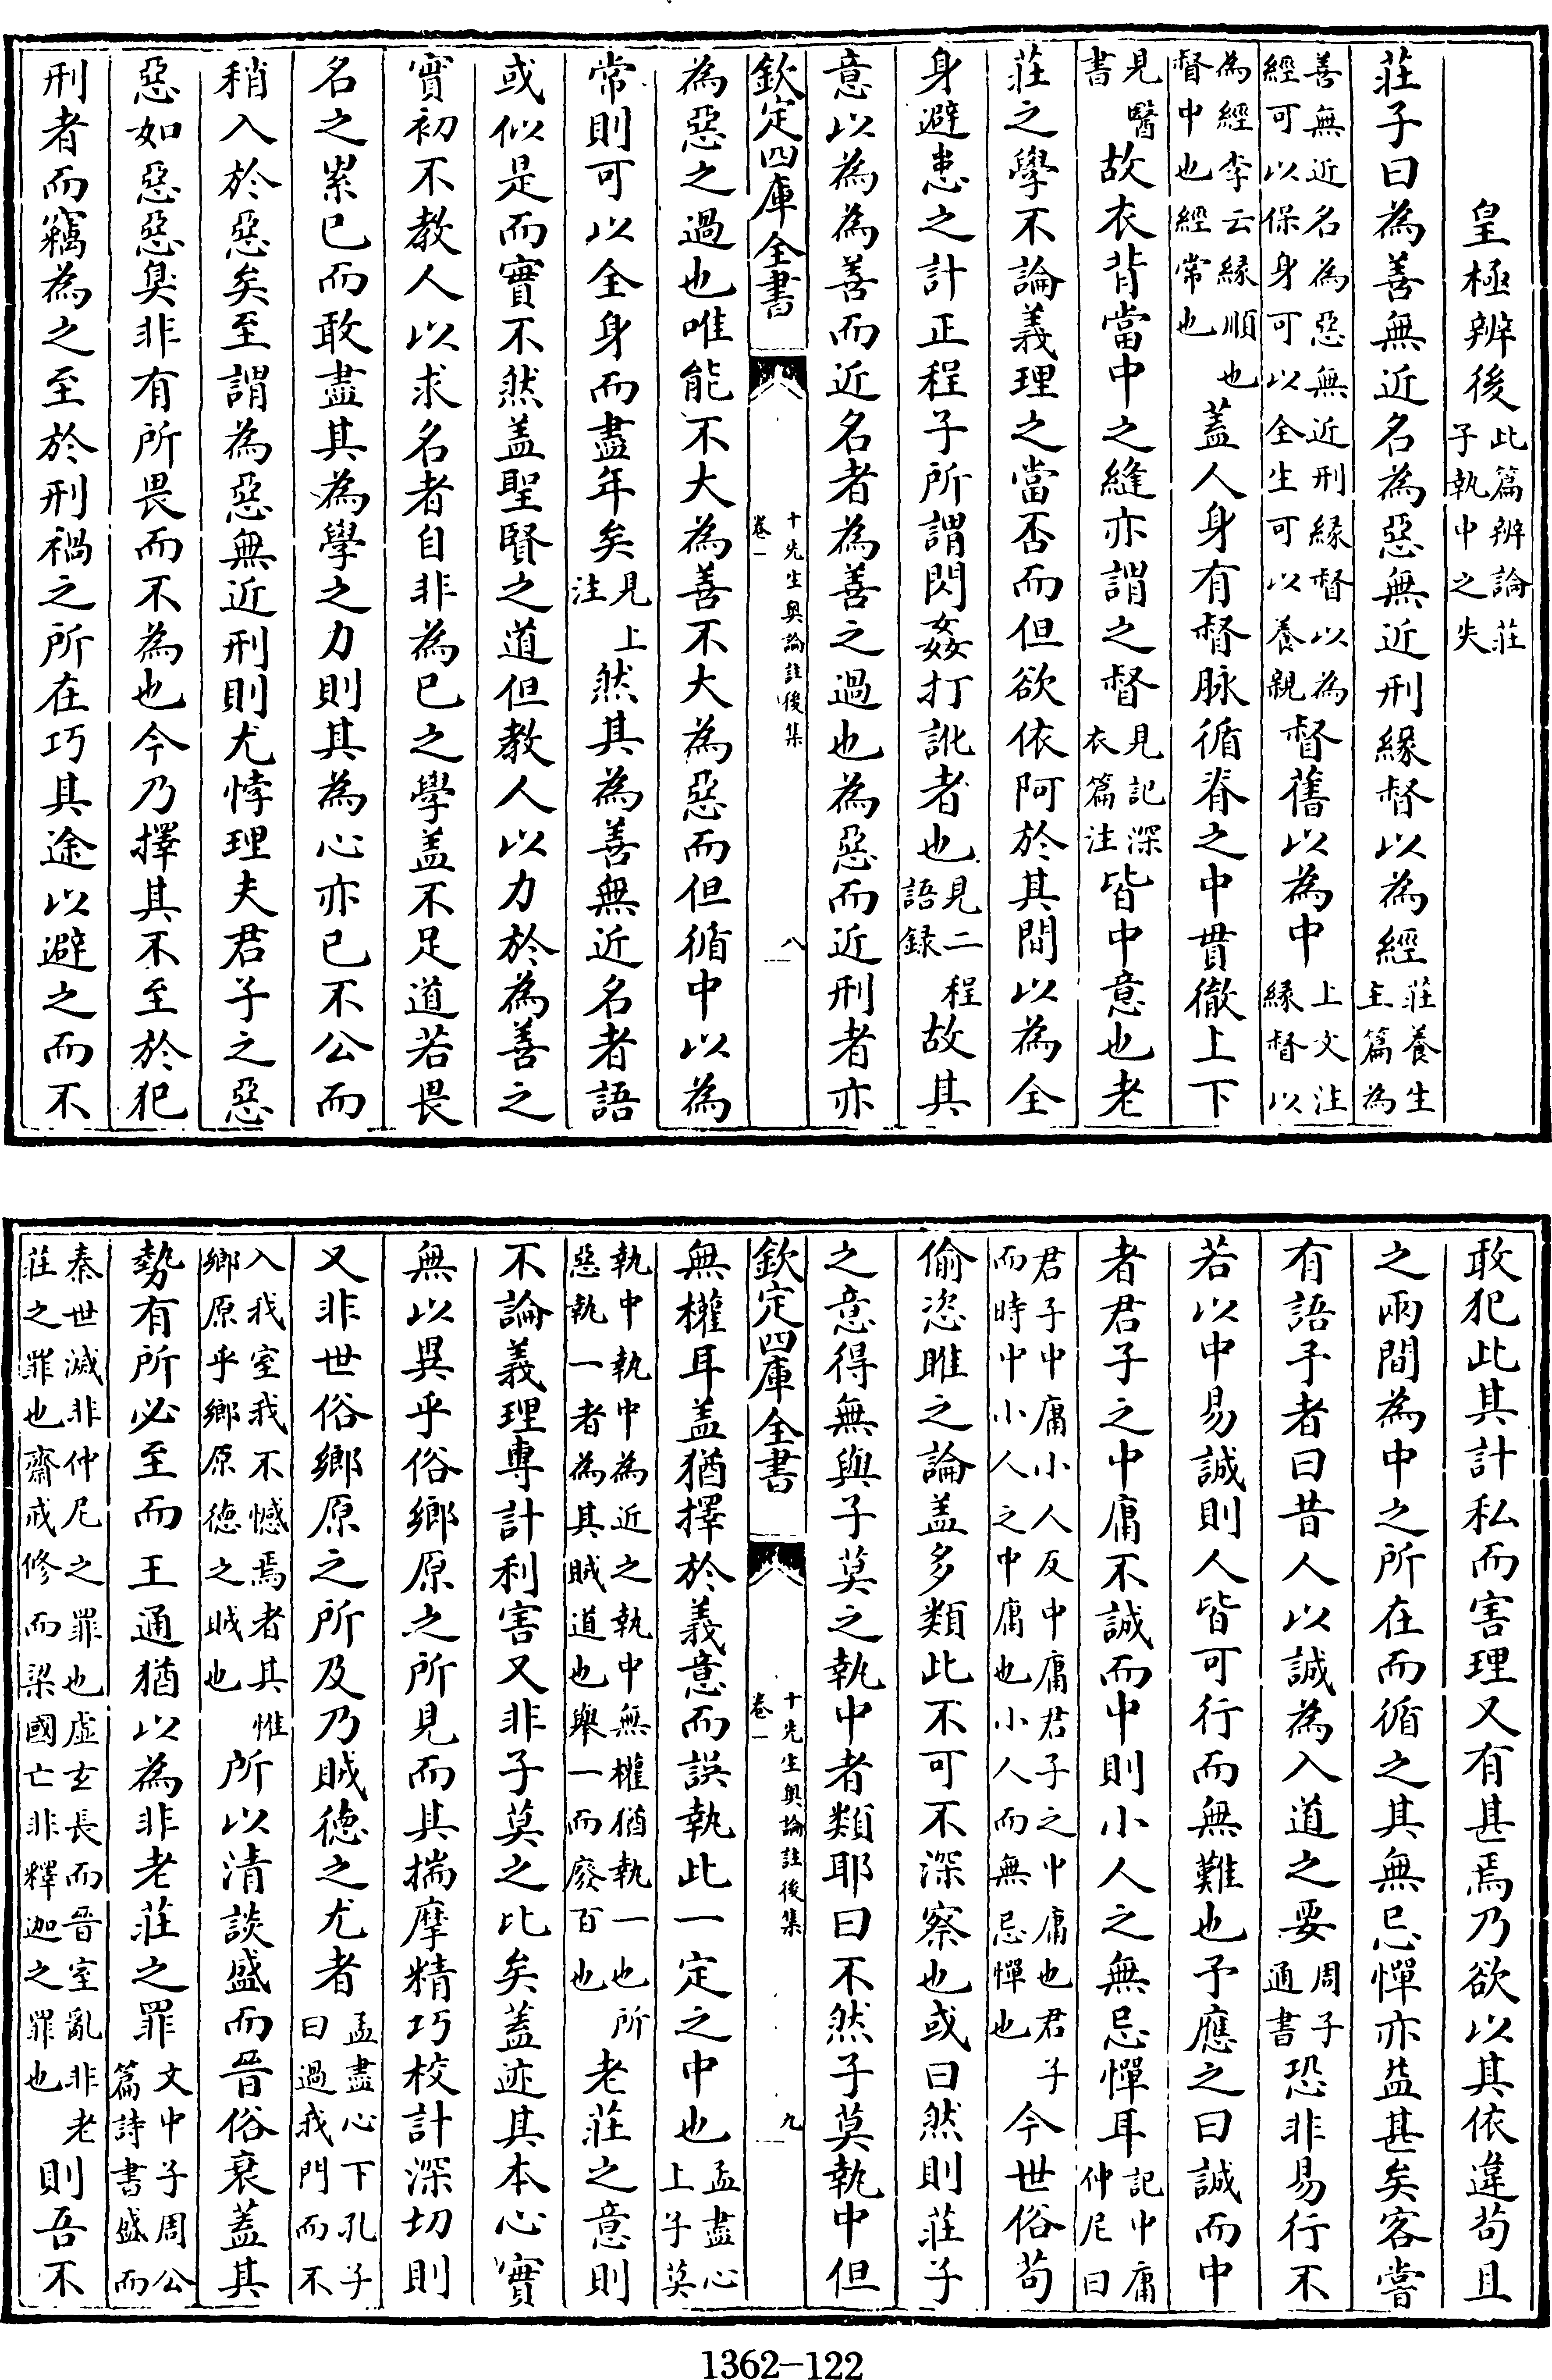 皇極辨後此篇辨論莊子執中之失
莊子曰為善無近名為惡無近刑緣督以為經莊養生主篇為
善無近名為惡無近刑緣督以為經可以保身可以全生可以養親督舊以為中上文注緣督以
為經李云緣順也督中也經常也蓋人身有督脉循脊之中貫徹上下
見醫書故衣背當中之縫亦謂之督見記深衣篇注皆中意也老
莊之學不論義理之當否而但欲依阿於其間以為全
身避患之計正程子所謂閃姦打訛者也見二程語録故其
意以為為善而近名者為善之過也為惡而近刑者亦
欽定四庫全書
十先生奥論註後集
卷一
八
為惡之過也唯能不大為善不大為惡而但循中以為
常則可以全身而盡年矣見上注然其為善無近名者語
或似是而實不然盖聖賢之道但教人以力於為善之
實初不教人以求名者自非為已之學盖不足道若畏
名之累已而敢盡其為學之力則其為心亦已不公而
稍入於惡矣至謂為惡無近刑則尤悖理夫君子之惡
惡如惡惡臭非有所畏而不為也今乃擇其不至於犯
刑者而竊為之至於刑禍之所在巧其途以避之而不
敢犯此其計私而害理又有甚焉乃欲以其依違茍且
之兩間為中之所在而循之其無忌憚亦益甚矣客嘗
有語予者曰昔人以誠為入道之要周子通書恐非易行不
若以中易誠則人皆可行而無難也予應之曰誠而中
者君子之中庸不誠而中則小人之無忌憚耳記中庸仲尼曰
君子中庸小人反中庸君子之中庸也君子而時中小人之中庸也小人而無忌憚也今世俗茍
偷恣睢之論盖多類此不可不深察也或曰然則莊子
之意得無與子莫之執中者類耶曰不然子莫執中但
欽定四庫全書
十先生奥論註後集
卷一
九
無權耳盖猶擇於義意而誤執此一定之中也孟盡心上子莫
執中執中為近之執中無權猶執一也所惡執一者為其賊道也舉一而廢百也老莊之意則
不論義理專計利害又非子莫之比矣蓋迹其本心實
無以異乎俗鄉原之所見而其揣摩精巧校計深切則
又非世俗鄉原之所及乃賊德之尤者孟盡心下孔子曰過我門而不
入我室我不憾焉者其惟鄉原乎鄉原德之賊也所以清談盛而晉俗衰蓋其
勢有所必至而王通猶以為非老莊之罪文中子周公篇詩書盛而
秦世滅非仲尼之罪也虛玄長而晉室亂非老莊之罪也齋戒修而梁國亡非釋迦之罪也則吾不
1362-122